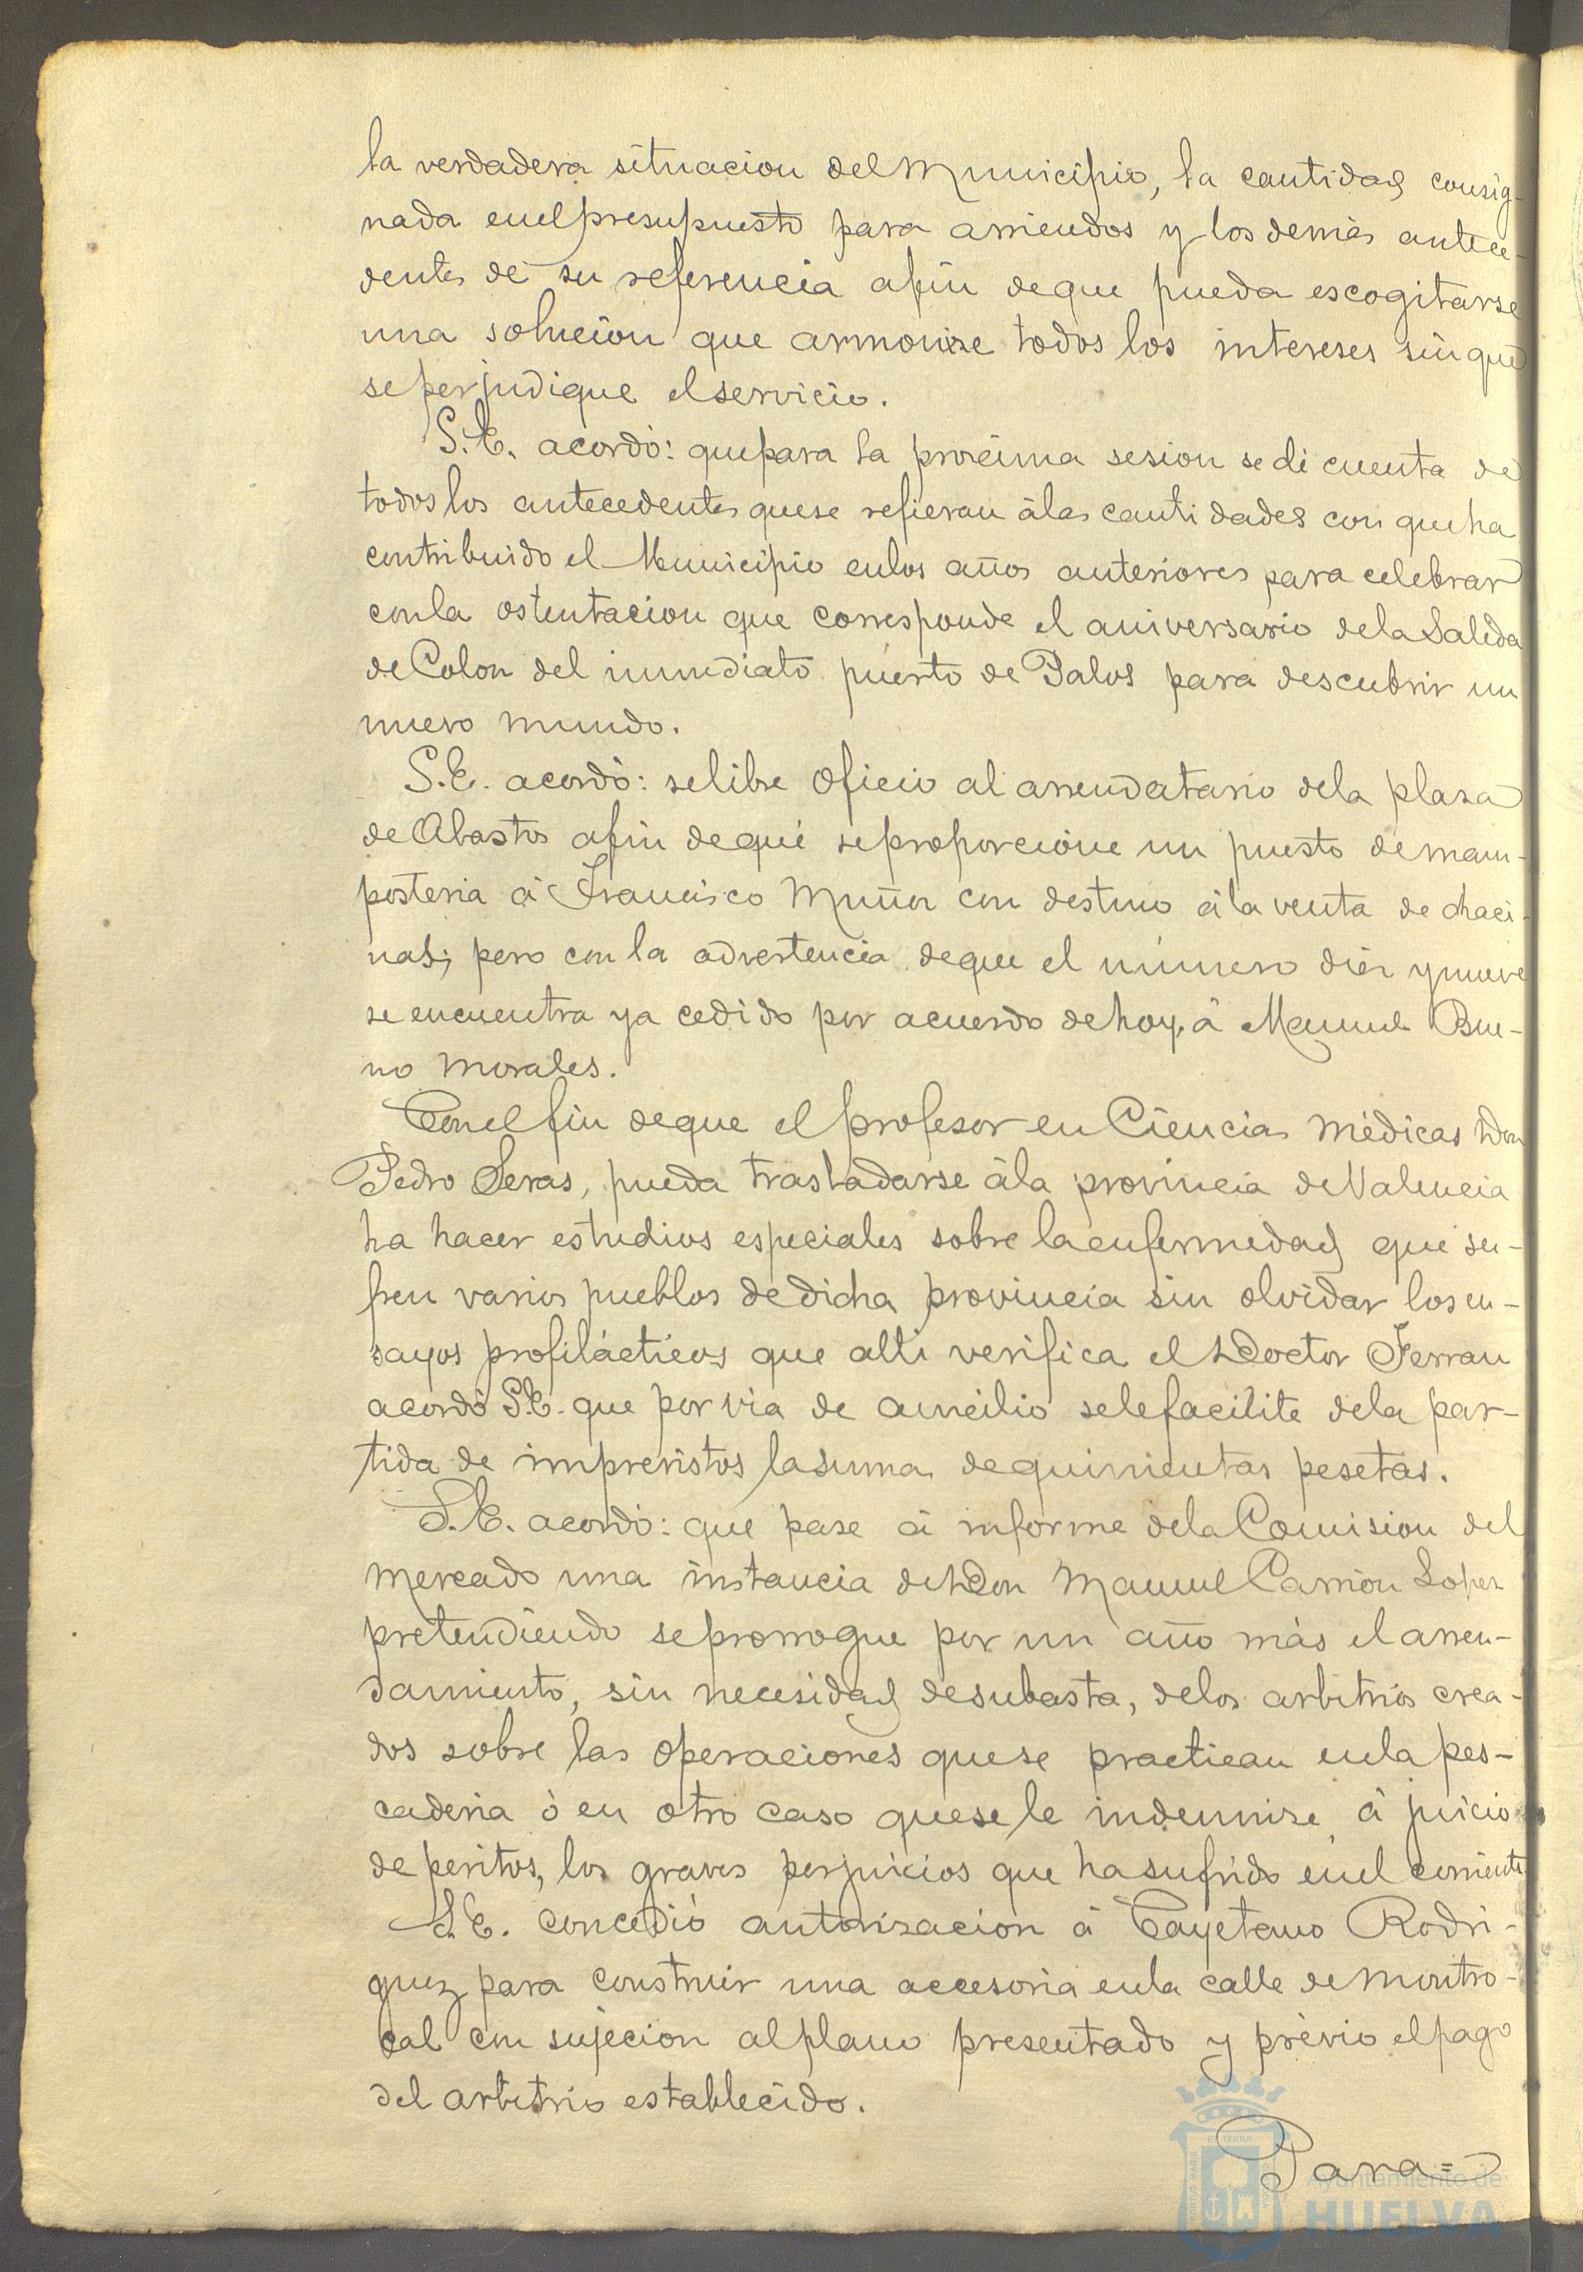 la verdadera situacion del Municipio, la cantidad consig-
nada en el presupuesto para arriendos y los demás antece-
dentes de su referencia afin de que pueda escogitarse
una solucion que armonize todos los intereses sin que
se perjudique el servicio.
S.E. acordó: que para la procsima sesion se dé cuenta de
todos los antecedentes que se refieran á las cantidades con que ha
contribuido el Municipio en los años anteriores para celebrar
con la ostentacion que corresponde el aniversario de la Salida
de Colon del inmediato puerto de Palos para descubrir un
nuevo mundo.
S.E. acordó: se libre oficio al arrendatario de la plaza
de Abastos afin de que se proporcione un puesto de mam-
posteria á Francisco Muñoz con destino á la venta de chaci-
nas; pero con la advertencia de que el número diez y nueve
se encuentra ya cedido por acuerdo de hoy, á Manuel Bue-
no Morales.
Con el fin de que el profesor en Ciencias médicas Don
Pedro Seras, pueda trasladarse á la provincia de Valencia
ha hacer estudios especiales sobre la enfermedad que su-
fren varios pueblos de dicha provincia sin olvidar los en-
sayos profilácticos que alli verifica el Doctor Ferran
acordó S.E. que por via de aucilio se le facilite de la par-
tida de imprevistos la suma de quinientas pesetas.
S.E. acordó: que pase á informe de la Comision del
Mercado una instancia de Don Manuel Carrion Lopez
pretendiendo se prorrogue por un año más el arren-
damiento, sin necesidad de subasta, de los arbitrios crea-
dos sobre las operaciones que se practican en la pes-
caderia ó en otro caso que se le indemnize á juicio
de peritos, los graves perjuicios que ha sufrido en el corriente
S.E. concedió autorizacion á Cayetano Rodri-
guez para construir una accesoria en la calle de Montro-
cal con sujecion al plano presentado y prévio el pago
del arbitrio establecido.
Para=
Ayuntamiento de
HUELVA